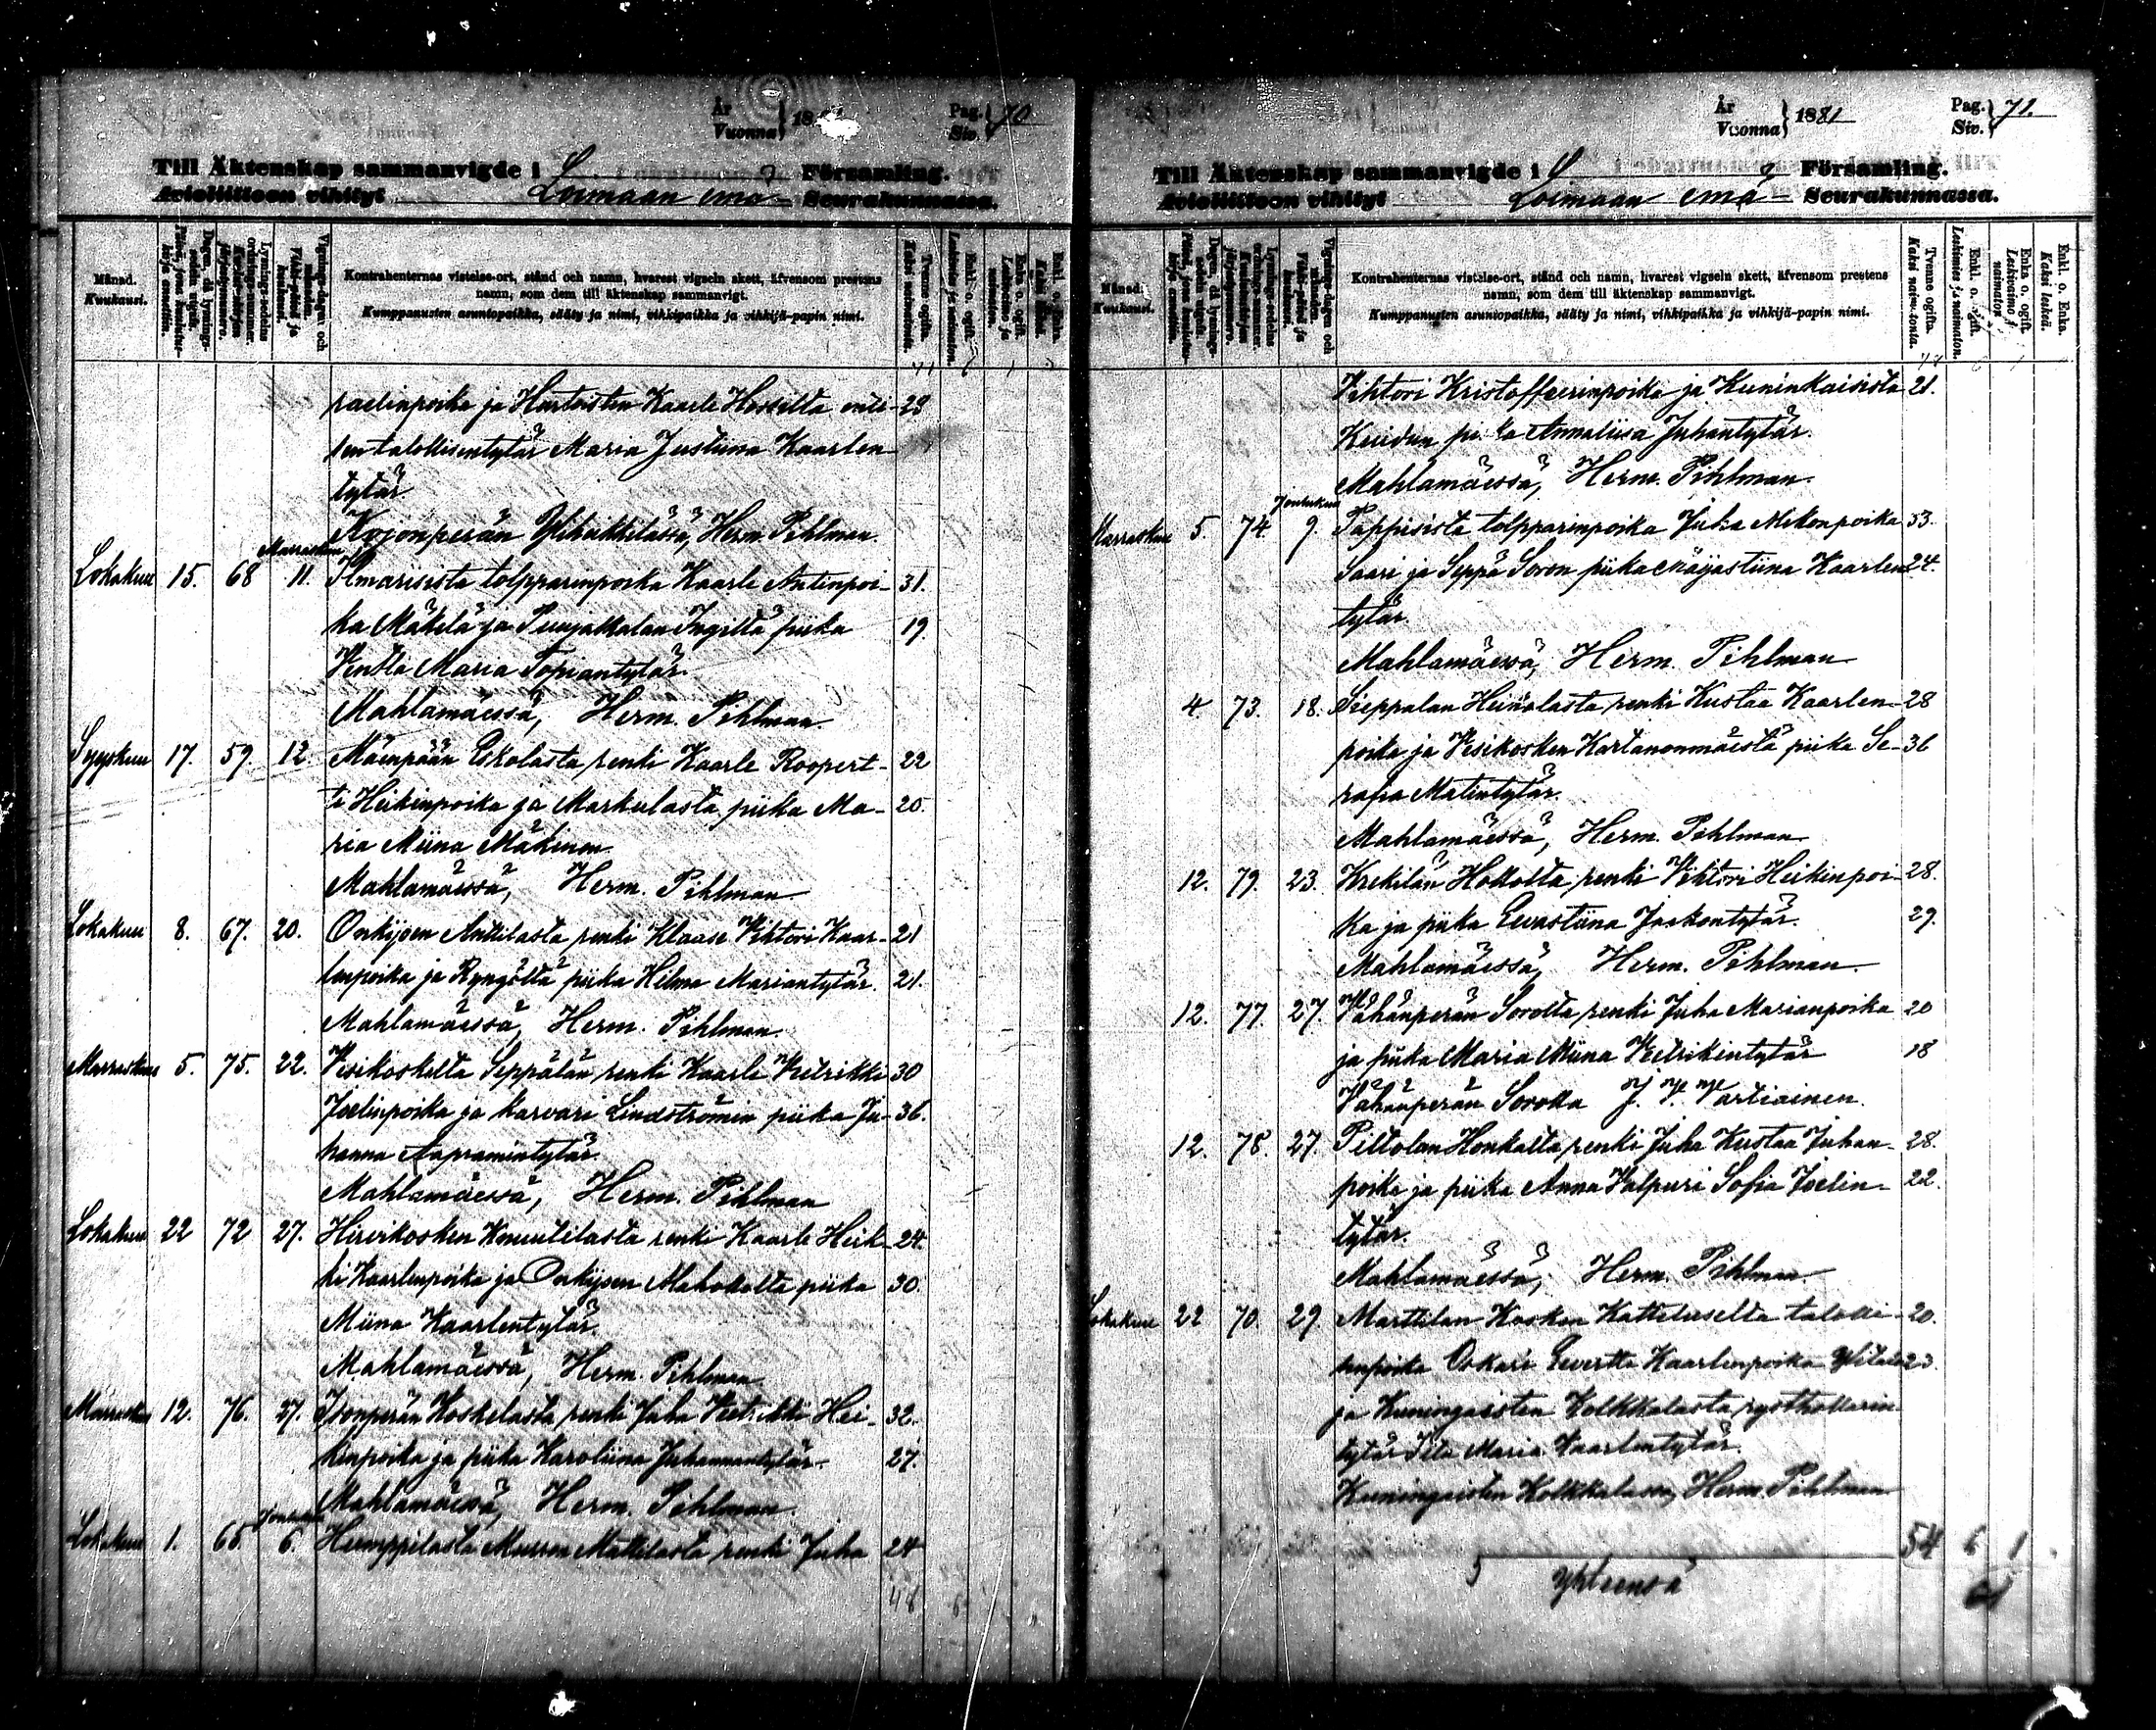 År
Vuonna } 18
Pag.
Siv. } 70
Till Äktenskap sammanvigde i L Församling.
Avioliittoon vihityt Loimaan emä- Seurakunnassa.
Månad.
Kuukausi.
Kontrahenternas vistelse-ort, stånd och namn, hvarest vigseln skett, äfvensom prestens
namn, som dem till äktenskap sammanvigt.
Kumppanusten asuntopaikka, sääty ja nimi, vihkipaikka ja vihkijä-papin nimi.
raelinpoika ja Hartoisten Kaarle Hessiltä enti- 28
sen talollisentytär Maria Justiina Kaarlen
tytär
Kojonperän Ylihäkkilässä, Herm. Pihlman.
Marraskuu
Lokakuu 15. 68 11. Ilmarisista tolpparinpoika Kaarle Antinpoi- 31.
ka Mäkelä ja Puujalkalan Ingiltä piika 19.
Ventla Maria Topiantytär.
Mahlamäessä, Herm. Pihlman.
Syyskuu 17. 59. 12. Mäenpään Eskolasta renki Kaarle Roopert- 22
ti Heikinpoika ja Markulasta piika Ma- 20.
ria Miina Mäkinen.
Mahlamäessä, Herm. Pihlman
Lokakuu 8. 67. 20. Onkijoen Anttilasta renki Klaase Vihtori Kaar- 21
lenpoika ja Ryngöltä piika Hilma Mariantytär. 21.
Mahlamäessä, Herm. Pihlman.
Marraskuu 5. 75. 22. Vesikoskelta Seppälän renki Kaarle Vietrikki 30
Joelinpoika ja karvari Lindströmin piika Ju- 36.
hanna Aapramintytär.
Mahlamäessä, Herm. Pihlman
Lokakuu 22 72 27. Hirvikosken Knuutilasta renki Kaarle Heik- 24.
ki Kaarlenpoika ja Onkijoen Mahokalta piika 30.
Miina Kaarlentytär.
Mahlamäessä, Herm. Pihlman
Marraskuu 12. 76. 27. Isonperän Koskelasta renki Juha Vietrikki Hei- 32.
kinpoika ja piika Karoliina Juhannantytär. 27.
Mahlamäessä, Herm. Pihlman.
Joulukuu
Lokakuu 1. 65. 6. Hemppilästä Mattilasta renki Juha 24
48 6
År
Vuonna } 1881
Pag.
Siv. } 71.
Till Äktenskap sammanvigde i L Församling.
Avioliittoon vihityt Loimaan emä- Seurakunnassa.
Månad.
Kuukausi.
Kontrahenternas vistelse-ort, stånd och namn, hvarest vigseln skett, äfvensom prestens
namn, som dem till äktenskap sammanvigt.
Kumppanusten asuntopaikka, sääty ja nimi, vihkipaikka ja vihkijä-papin nimi.
Vihtori Kristofferinpoika ja Kuninkaisista 21.
Annaliisa Juhantytär.
Mahlamäessä, Herm. Pihlman.
Joulukuu
Marraskuu 5. 74. 9. Pappisista tolpparinpoika Juha Mikonpoika 33.
Saari ja Seppä Soron piika Maijastiina Kaarlen 24.
tytär.
Mahlamäessä, Herm. Pihlman
4. 73. 18. Sieppalan Heinolasta renki Kustaa Kaarlen- 28
poika ja Vesikosken Kartanonmäestä piika Se- 36
rafia Matintytär.
Mahlamäessä, Herm. Pihlman
12. 79. 23. Krekilän Hollolta renki Vihtori Heikinpoi- 28.
ka ja piika Eevastiina Jaakontytär. 29.
Mahlamäessä, Herm. Pihlman.
12. 77. 27. Vähänperän Sorolta renki Juha Marianpoika 20
ja piika Maria Miina Vietrikintytär 18
Vähänperän Sorolla J. V. Vartiainen.
12. 78. 27. Piltolan Honkalta renki Juha Kustaa Juhan- 28.
poika ja piika Anna Valpuri Sofia Joelin- 22.
tytär.
Mahlamäessä, Herm. Pihlman.
Lokakuu 22 70. 29. Marttilan Kosken Katteluselta talolli- 20.
senpoika Oskari Evertti Kaarlenpoika Ylitalo 23.
ja Kuningaisten Kolkkalasta rysthollarin
tytär Iita Maria Kaarlentytär.
Kuningaisten Kolkkalassa, Herm. Pihlman
54 6 1
Yhteensä